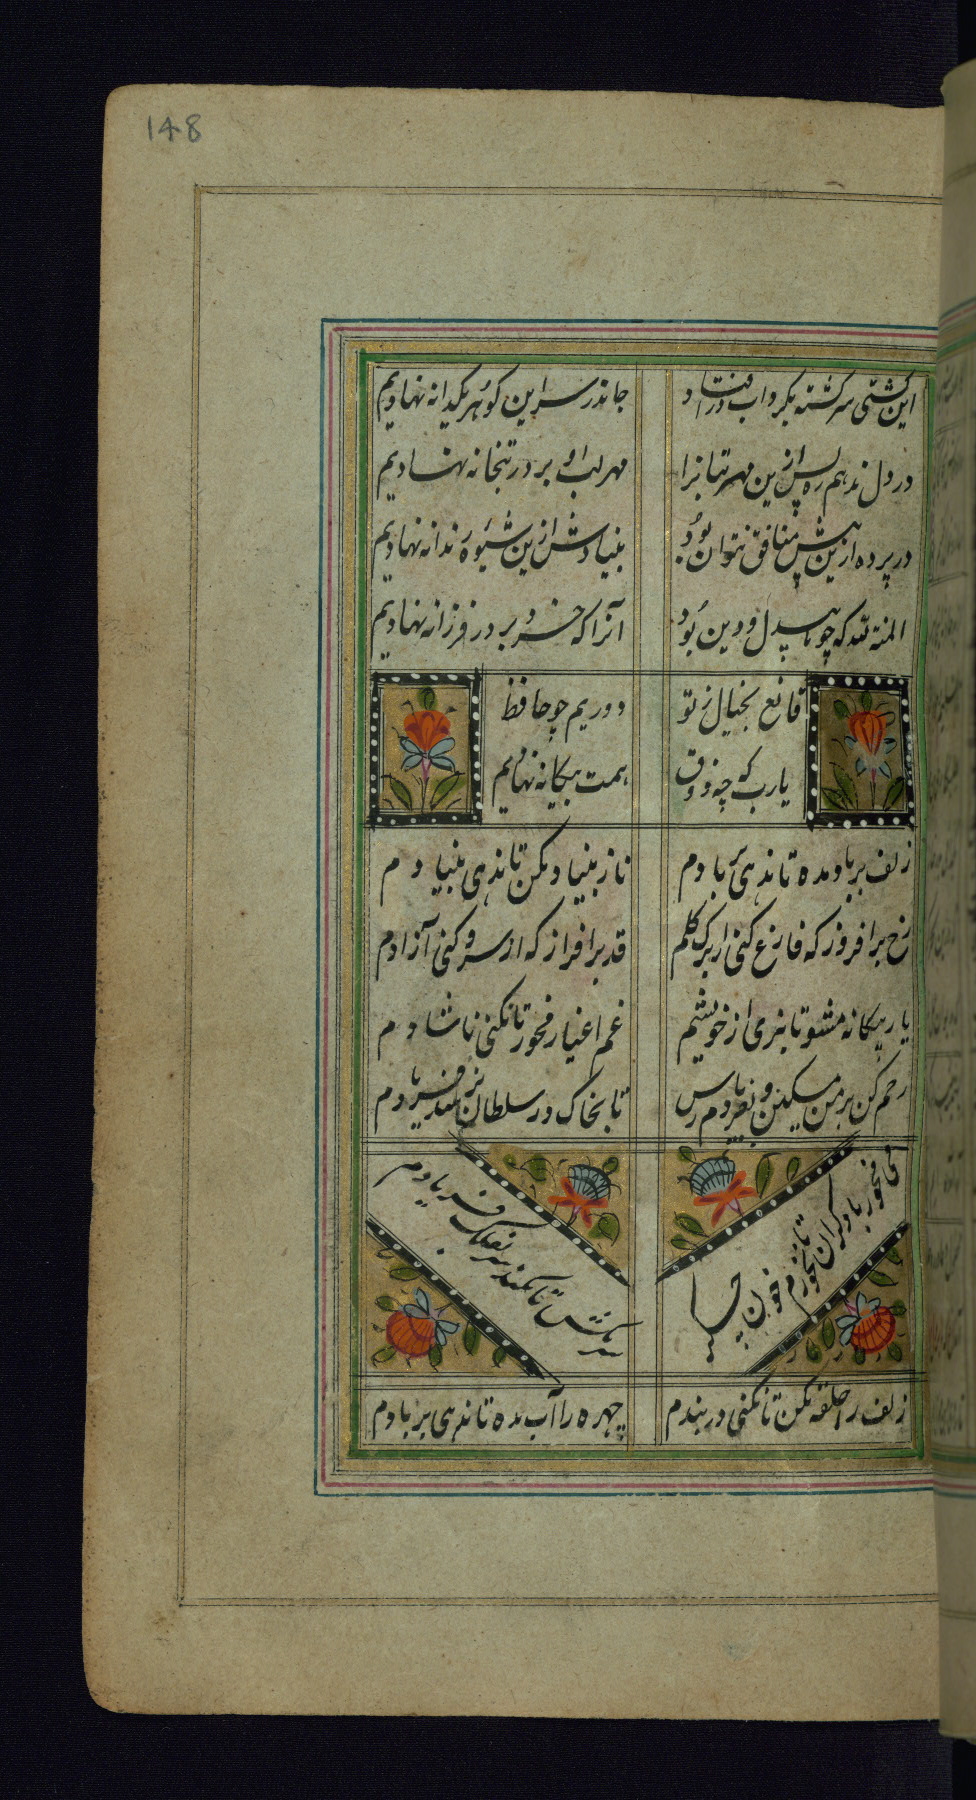 148
این کشتی سرکشته بکرداب در افتاد
جاندر سر این کوهر یکدانه نهادیم
در دل ندهم ره پس ازین مهر بتانرا
مهر لب او بر در بتخانه نهادیم
در پرده ازین پیش منافق نتوان بود
بنیادش ازین شیوه رندانه نهادیم
المنة لله که چو ما بیدل و دین بود
آنرا که خرد بر در فرزانه نهادیم
قانع بخیال ز تو
دوریم چو حافظ
یارب که چه ذوق
همت بیکانه نهادیم
زلف بر باد مده تا ندهی بر بادم
ناز بنیاد مکن تا ندهی بنیادم
رخ برافروز که فارغ کنی از برک کلم
قد برافراز که از سرو کنی آزادم
یار بیکانه مشو تا نبری از خویشم
غم اغیار مخور تا نکنی ناشادم
رحم کن بر من مسکین و بفریادم رس
تا بخاک در سلطان نرسد فریادم
می مخور با دکران تا نخورم خون جکر
سرمکش تا نکشد سر بفلک فریادم
زلف را حلقه مکن تا نکنی در بندم
چهره را آب مده تا ندهی بر بادم